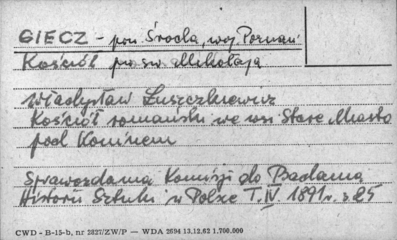 GIECZ - pow. Środa, woj. Poznań
Kościół pw św. Mikołaja
Władysław Łuszczkiewicz
Kościół romański we wsi Stare Miasto
pod Koninem
Sprawozdania Komisji do Badania
Historii Sztuki w Polsce T. IV. 1891 r. s 25
CWD - B-15-b, nr 2827/ZW/P — WDA 2694 13.12.62 1.700.000